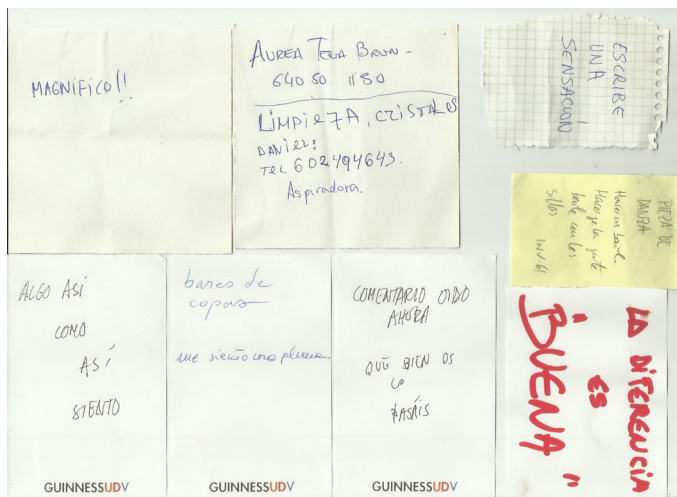 MAGNIFICO!!
AUREA TENA BRUN-
640 50 1180
LIMPIEZA, CRISTALES
DANIEL:
TEL. 602494643.
Aspiradora.
ESCRIBE
UNA
SENSACIÓN
PIEZA DE
DANZA
Hacer un baile
Hacerse la gente
baile con los
sillas INV-61
ALGO ASÍ
COMO
ASÍ
SIENTO
GUINNESSUDV
bares de
copas
me siento una pluma.
GUINNESSUDV
COMENTARIO OIDO
AHORA
QUE BIEN OS
LO
PASÁIS
GUINNESSUDV
LA DIFERENCIA
ES
"BUENA"